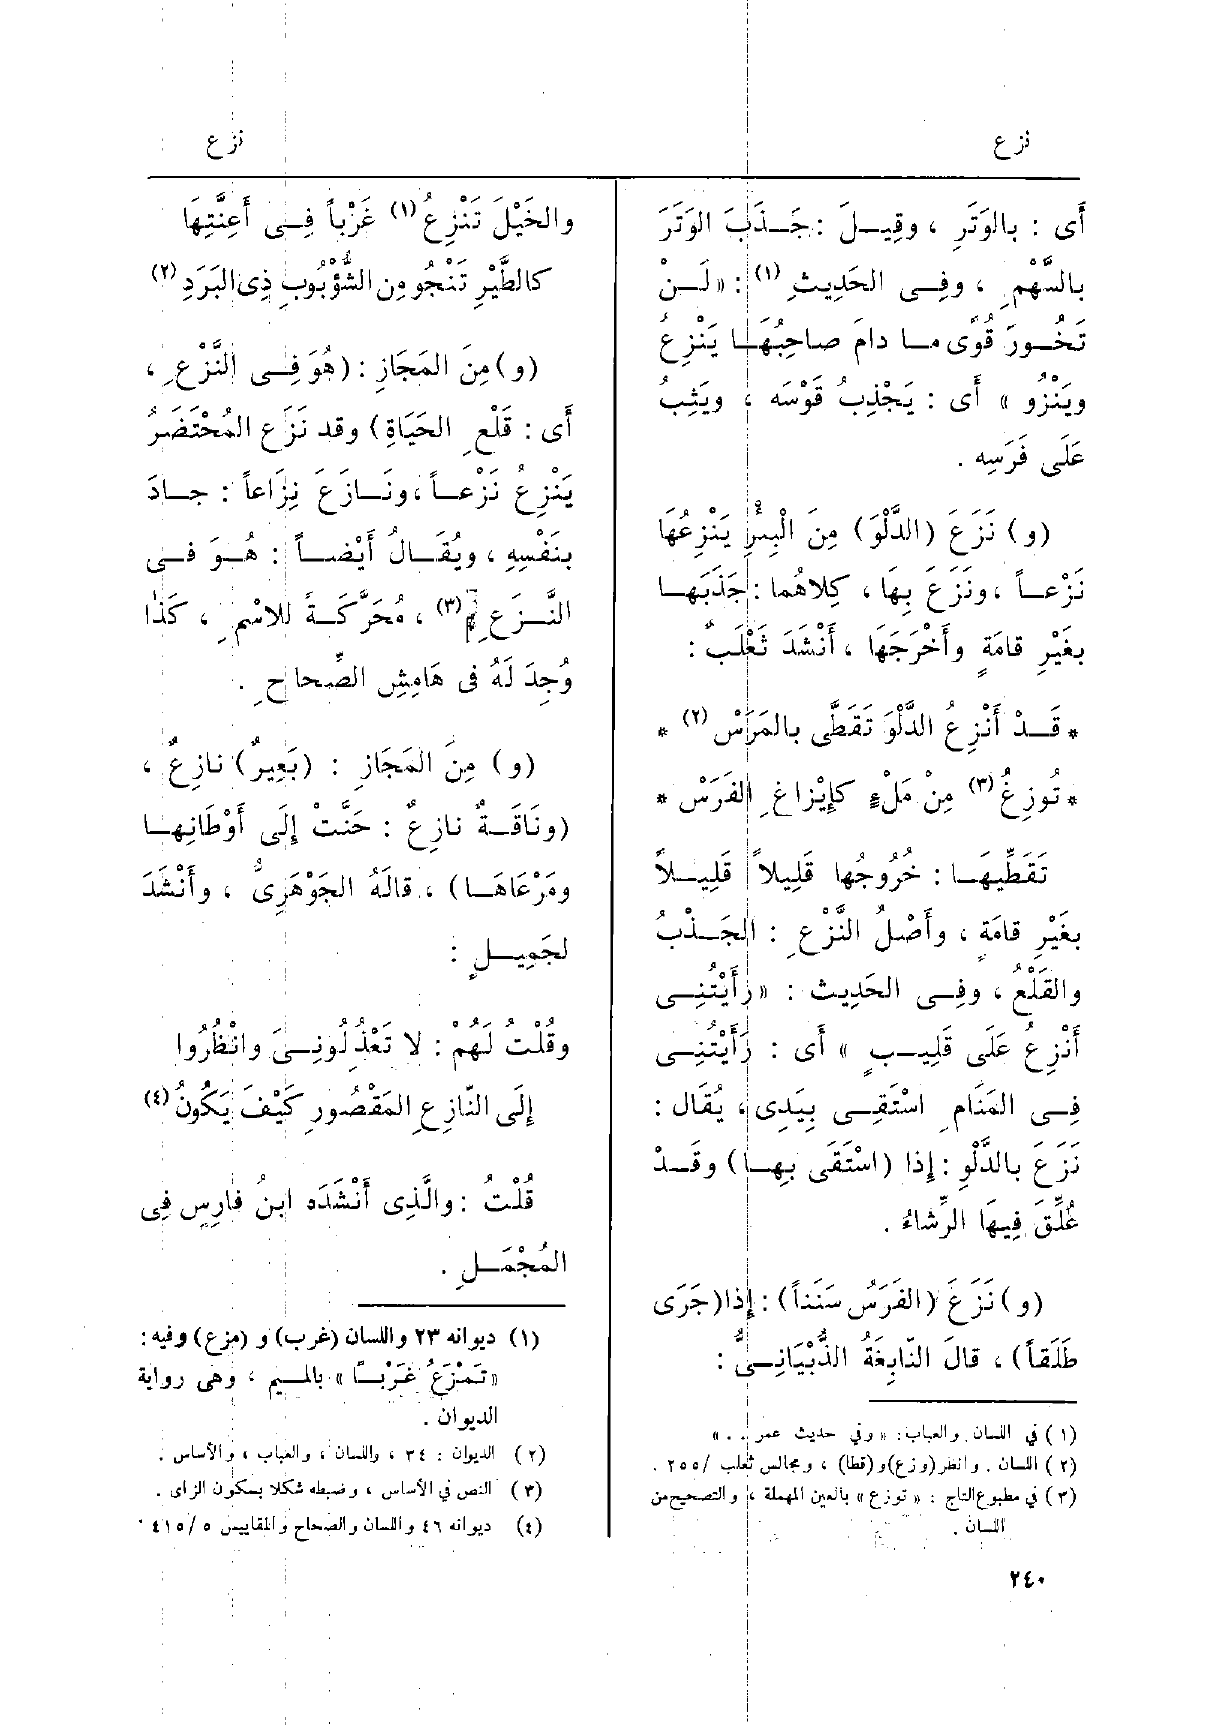 نزع
نزع
أَى : بالوَتَرِ ، وقِيلَ : جَذَبَ الوَتَرَ
بالسَّهْمِ ، وفِى الحَدِيثِ (١) : « لَنْ
تَخُورَ قُوًى ما دامَ صاحِبُهَا يَنْزِعُ
ويَنْزُو » أَى : يَجْذِبُ قَوْسَه ، ويَثِبُ
عَلَى فَرَسِه .
(و) نَزَعَ (الدَّلْوَ) مِنَ الْبِئْرِ يَنْزِعُهَا
نَزْعاً ، ونَزَعَ بِهَا ، كِلاهُما : جَذَبَها
بغَيْرِ قامَةٍ وأَخْرَجَهَا ، أَنْشَدَ ثَعْلَبٌ :
* قَدْ أَنْزِعُ الدَّلْوَ تَقَطَّى بالمَرَسْ (٢) *
* تُوزِغُ (٣) مِنْ مَلْءٍ كإِيْزاغِ الفَرَسْ *
تَقَطِّيهَا : خُرُوجُها قَلِيلاً قَلِيلاً
بغَيْرِ قامَةٍ ، وأَصْلُ النَّزْعِ : الجَذْبُ
والقَلْعُ ، وفِى الحَدِيث : « رَأَيْتُنِى
أَنْزِعُ عَلَى قَلِيبٍ » أَى : رَأَيْتُنِى
فِى المَنَامِ اسْتَقِى بِيَدِى ، يُقَال :
نَزَعَ بالدَّلْوِ : إِذا (اسْتَقَى بِها) وقَدْ
عُلِّقَ فِيهَا الرِّشاءُ .
(و) نَزَعَ (الفَرَسُ سَنَناً) : إِذا (جَرَى
طَلَقاً) ، قالَ النّابِغَةُ الذُّبْيَانِىُّ :
(١) في اللسان والعباب : « وفي حديث عمر . . »
(٢) اللسان . وانظر (وزع) و(قطا) ، ومجالس ثعلب /٢٥٥ .
(٣) في مطبوع التاج : « توزع » بالعين المهملة ، والتصحيح من
اللسان .
والخَيْلَ تَنْزِعُ (١) غَرْباً فِى أَعِنَّتِهَا
كالطَّيْرِ تَنْجُو مِن الشُّؤْبُوبِ ذِى البَرَدِ (٢)
(و) مِنَ المَجَازِ : (هُوَ فِى النَّزْعِ ،
أَى : قَلْعِ الحَيَاةِ) وقد نَزَع المُحْتَضَرُ
يَنْزِعُ نَزْعاً ، ونَازَعَ نِزَاعاً : جادَ
بنَفْسِهِ ، ويُقَالُ أَيْضاً : هُوَ فى
النَّزَعِ (٣) ، مُحَرَّكَةً للاسْمِ ، كَذٰا
وُجِدَ لَهُ فى هَامِشِ الصِّحاحِ .
(و) مِنَ المَجَازِ : (بَعِيرٌ) نازِعٌ ،
(ونَاقَةٌ نازِعٌ : حَنَّتْ إِلَى أَوْطَانِها
ومَرْعَاهَا) ، قالَهُ الجَوْهَرِىُّ ، وأَنْشَدَ
لجَمِيلٍ :
وقُلْتُ لَهُمْ : لا تَعْذِلُونِىَ وانْظُرُوا
إِلَى النّازِعِ المَقْصُورِ كَيْفَ يَكُونُ (٤)
قُلْتُ : والَّذِى أَنْشَدَه ابنُ فارِسٍ فِى
المُجْمَلِ .
(١) ديوانه ٢٣ واللسان (غرب) و (مزع) وفيه :
« تَمْزَعُ غَرْبًا » بالميم ، وهى رواية
الديوان .
(٢) الديوان : ٣٤ ، واللسان ، والعباب ، والأساس .
(٣) النص في الأساس ، وضبطه شكلا بسكون الزاى .
(٤) ديوانه ٤٦ واللسان والصحاح والمقاييس ٤١٥/٥
٢٤٠